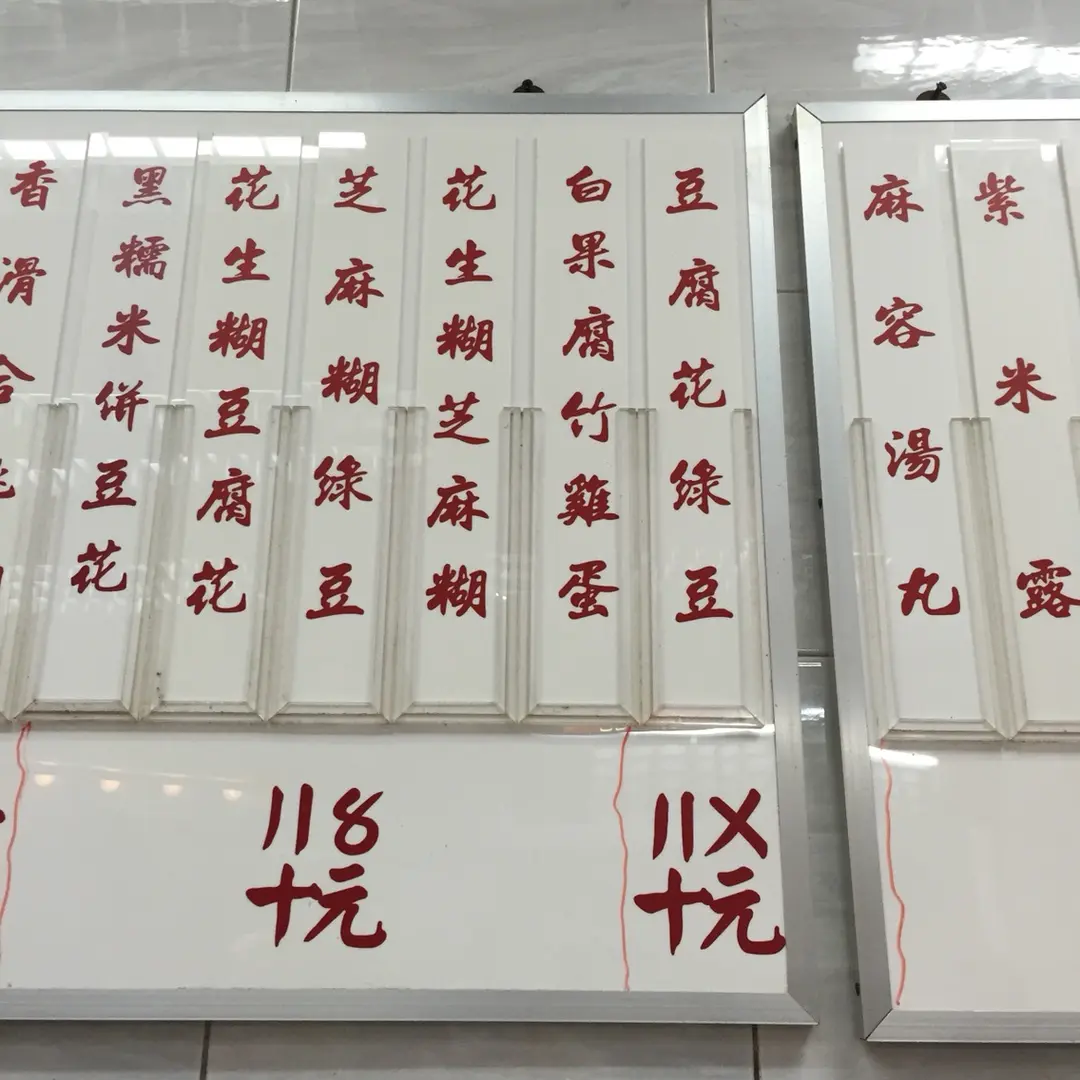 紫米露
麻容湯丸
豆腐花綠豆
白果腐竹雞蛋
花生糊芝麻糊
芝麻糊綠豆
花生糊豆腐花
黑糯米併豆花
香滑合
〢〤
十元
〢〥
十元